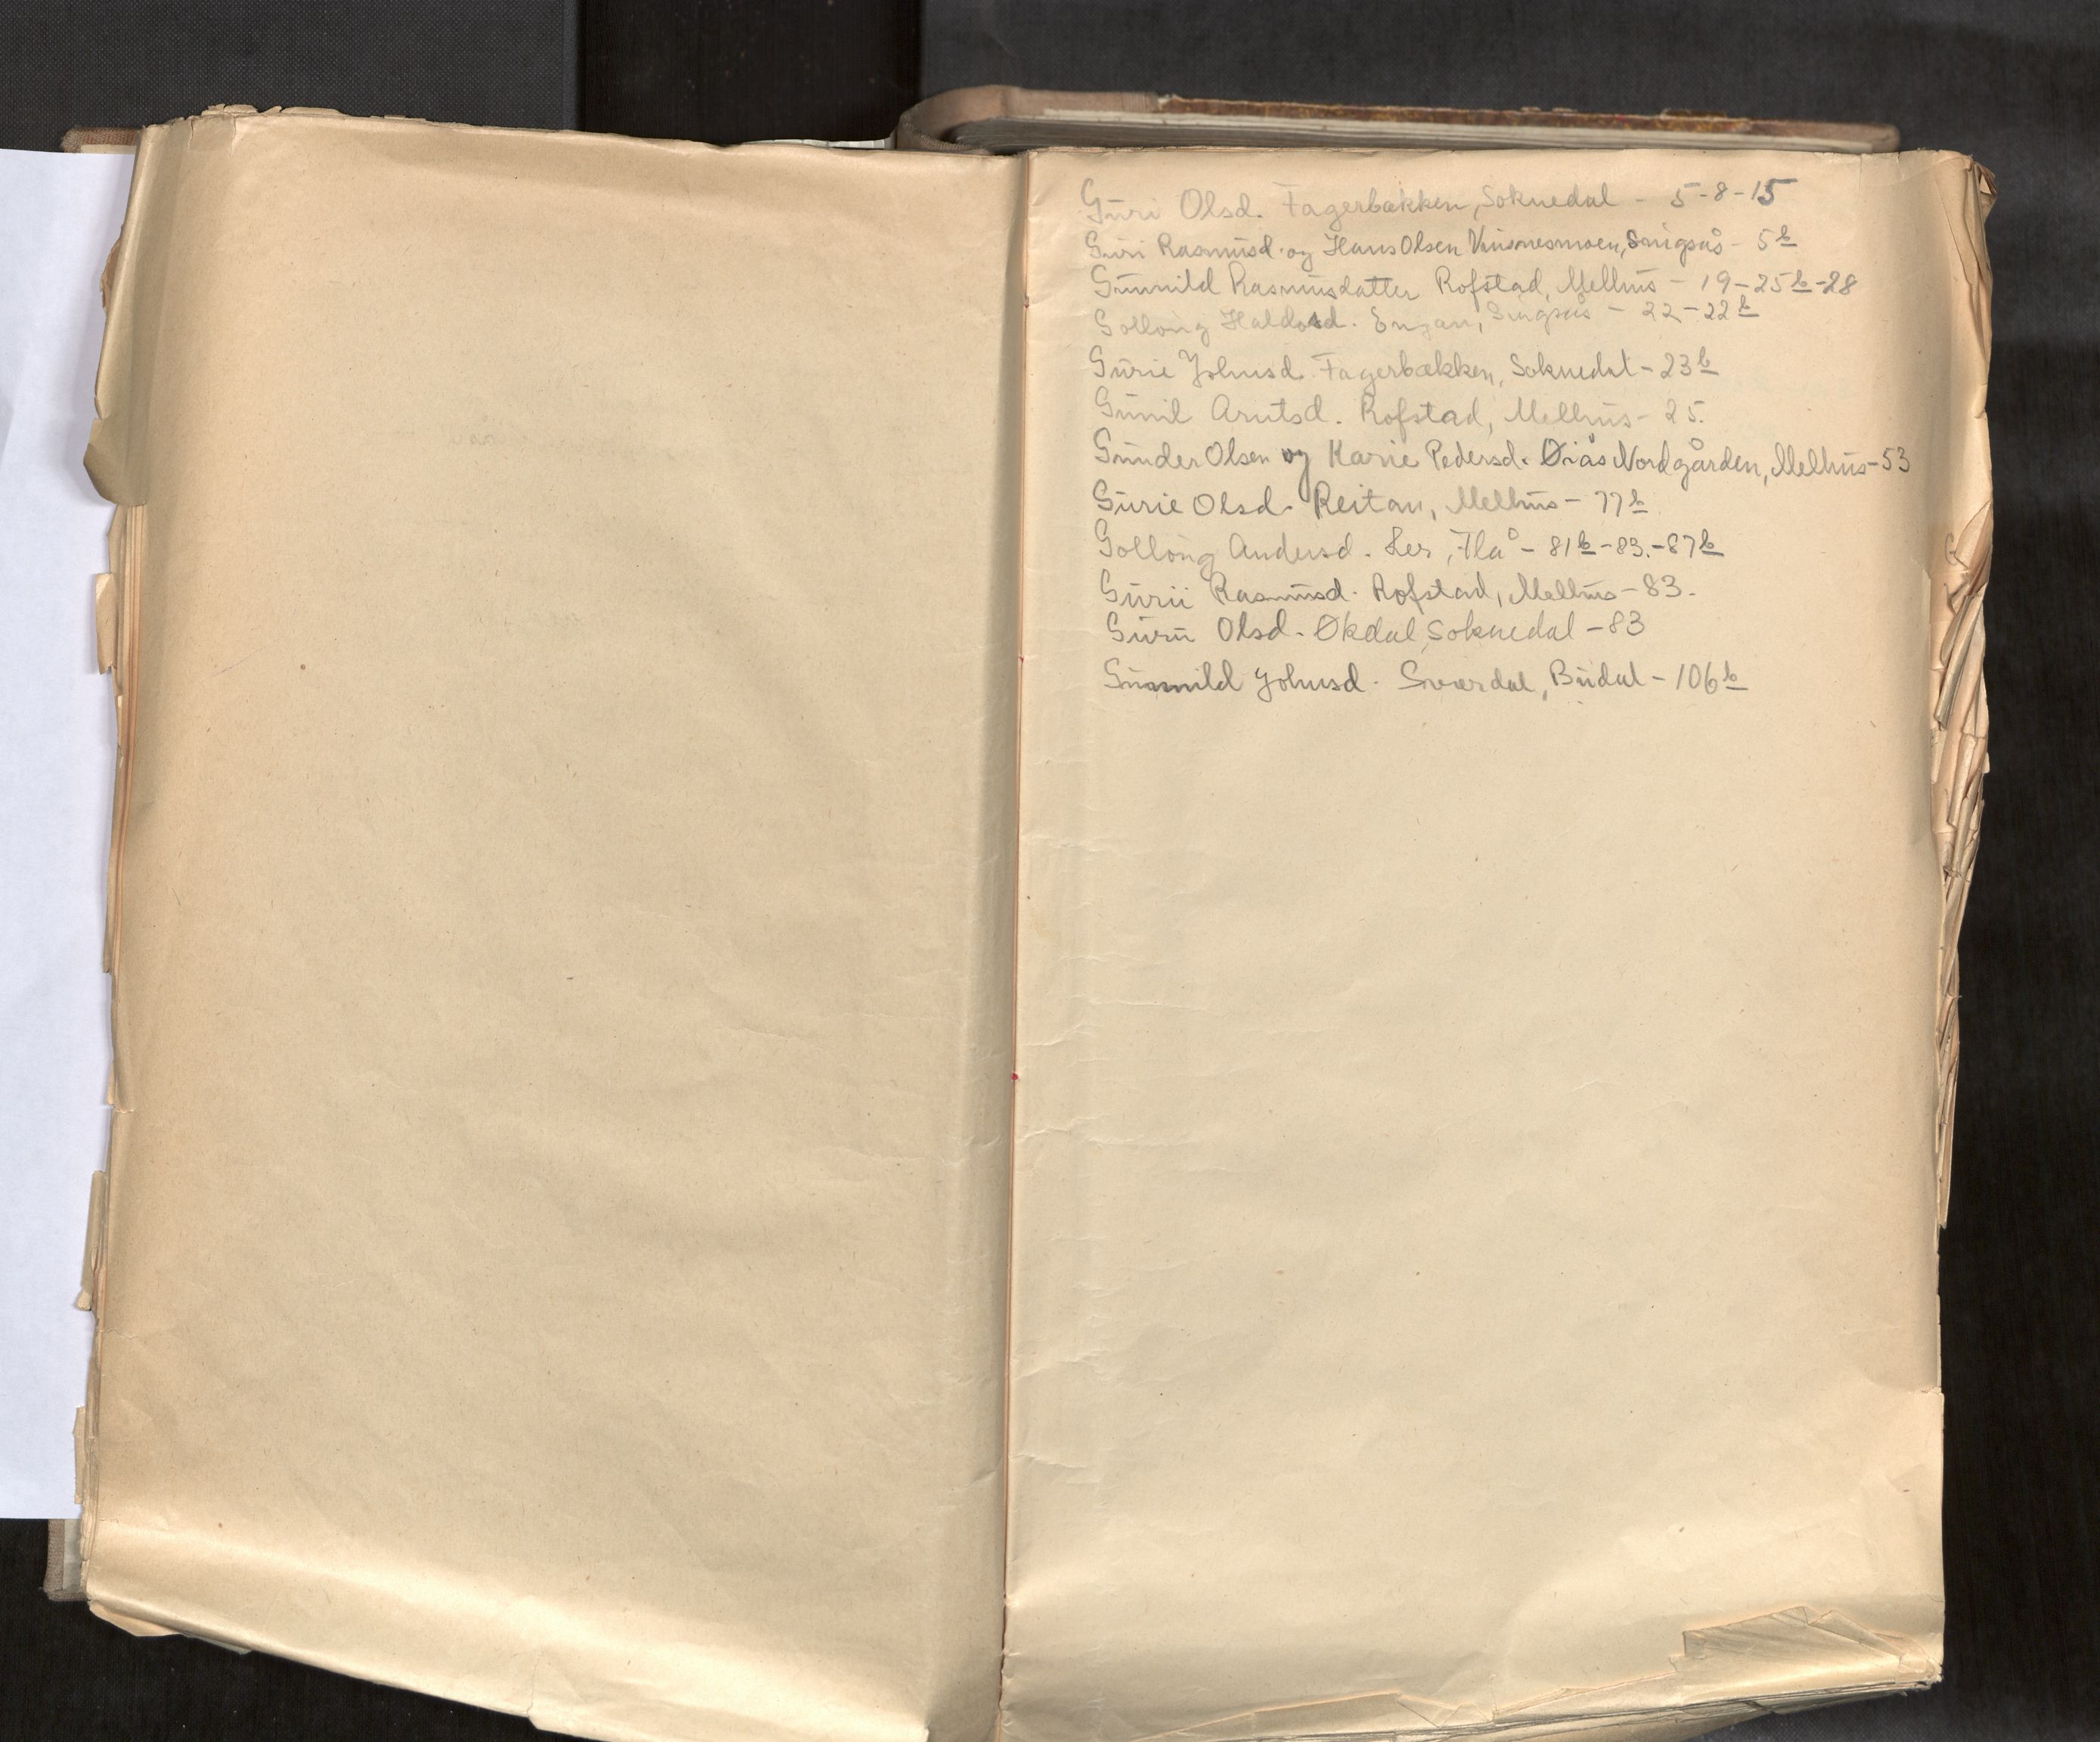 Guri Olsd. Fagerbækken, Soknedal - 5-8-15
Guri Rasmusd. og Hans Olsen Kinsnesmoen, Singsås - 5b
Gunnild Rasmusdatter Rofstad, Melhus - 19-25b-28
Gollong Haldosd. Engan, Singsås - 22-22b
Gurie Johnsd. Fagerbækken, Soknedal - 23b
Gunil Arntsd. Rofstad, Melhus - 25.
Gunder Olsen og Karie Pedersd. Øiås Nordgården, Melhus - 53
Gurie Olsd. Reitan, Melhus - 77b
Gollong Andersd. Ler, Flå - 81b-83.-87b
Gurii Rasmusd. Rofstad, Melhus - 83.
Guru Olsd. Økdal, Soknedal - 83
Gunnild Johnsd. Sværdal, Budal - 106b
G